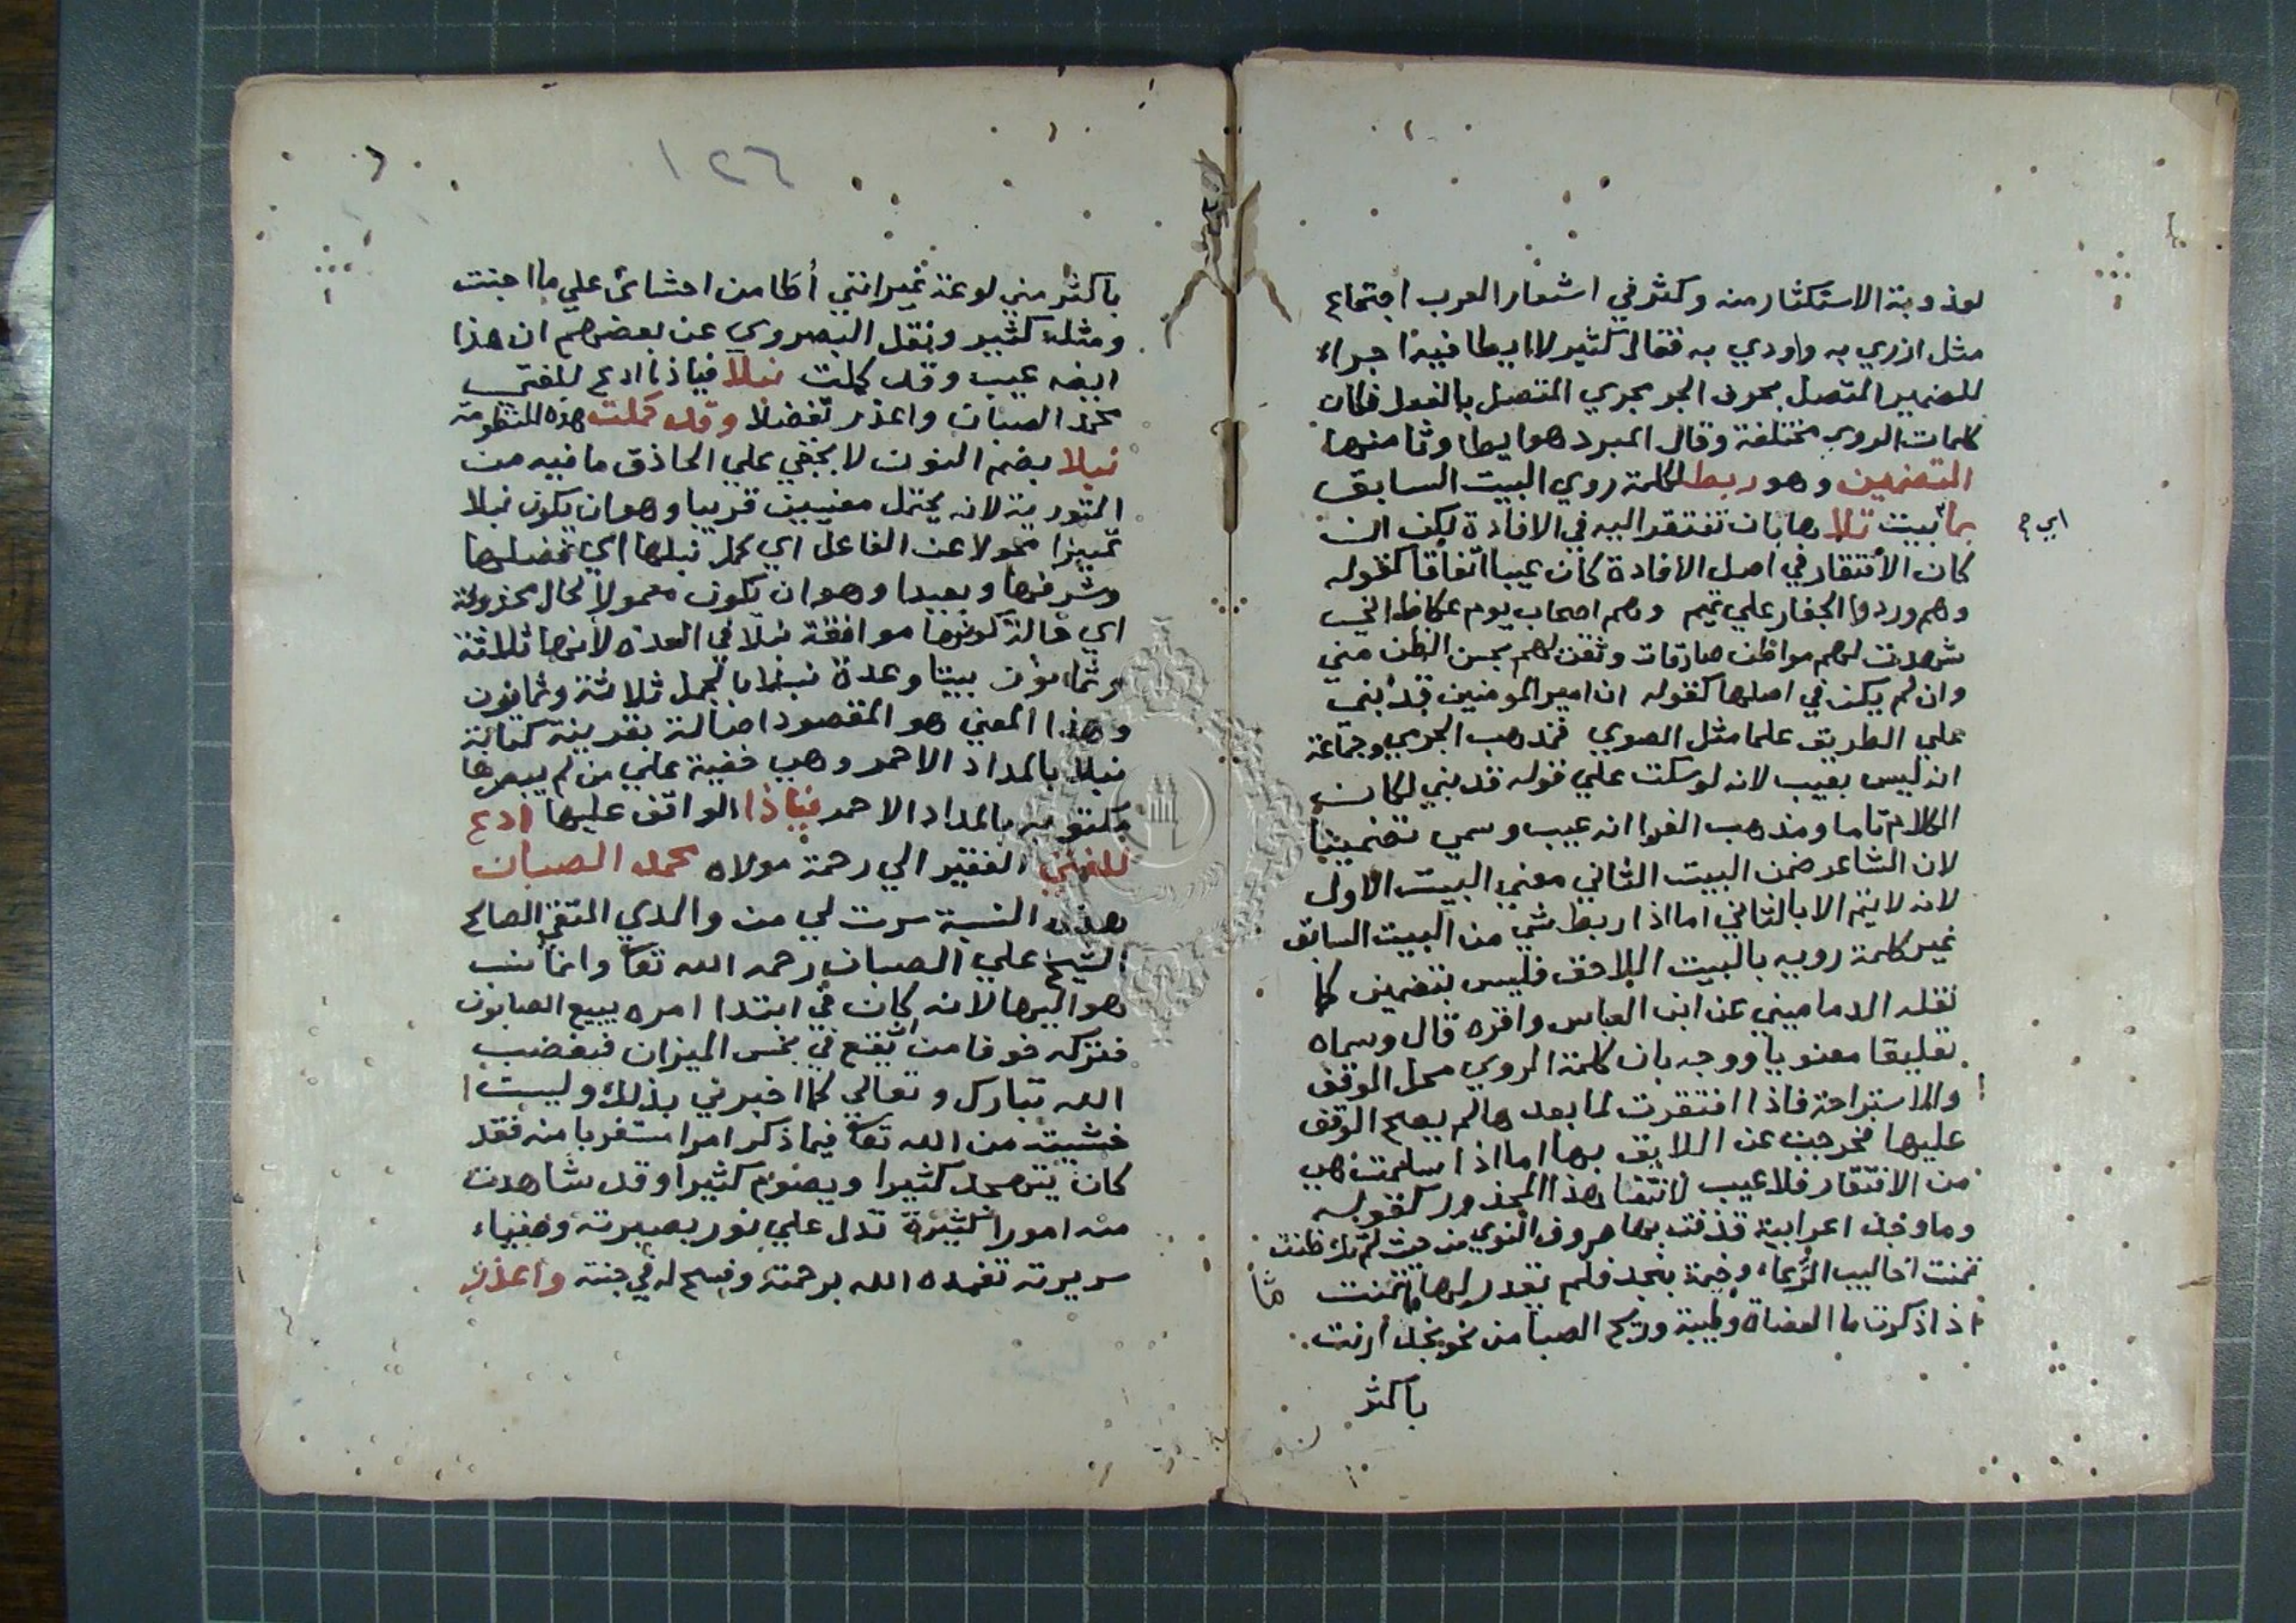 لعذوبة الاستكثار منه وكثر في اشعار العرب اجتماع
مثل ازري به واودي به فقال كثير لا ايطا فيه اجراء
للضمير المتصل بحرف الجر مجري المتصل بالفعل فكان
كلمات الروي مختلفة وقال المبرد هو ايطا وثامنها
التضمين وهو ربط لكلمة روي البيت السابق
بما بيت تلا ها بان تفتقر اليه في الافادة لكن ان
اي ح
كان الافتقار في اصل الافادة كان عيبا اتفاقا كقوله
وهم وردوا الجفار علي تميم وهم اصحاب يوم عكاظ اني
شهدت لهم مواطن صادقات وثقن لهم بحسن الظن مني
وان لم يكن في اصلها كقوله ان امير المومنين قد بني
علي الطريق علما مثل الصوي فمذهب الجرمي وجماعة
انه ليس بعيب لانه لو سكت علي قوله قد بني لكان
الكلام تاما ومذهب الفرا انه عيب وسمي تضمينا
لان الشاعر ضمن البيت الثاني معني البيت الاول
لانه لا يتم الا بالثاني اما اذا ربط شي من البيت السابق
غير كلمة رويه بالبيت اللاحق فليس بتضمين كما
نقله الدماميني عن ابن العباس واقره قال وسماه
تعليقا معنويا ووجه بان كلمة الروي محل الوقف
والاستراحة فاذا افتقرت لما بعدها لم يصح الوقف
عليها فخرجت عن اللايق بها اما اذا سلمت هي
من الافتقار فلا عيب لانتفا هذا المحذور كقوله
وما وجد اعرابية قذفت بها صروف النوي من حيث لم تك ظنت
تمنت احاليب الرعاء وخيمة بنجد فلم يقدر لها ما تمنت
اذا ذكرت ما العضاة وطيبة وريح الصبا من نحو نجد ارنت
باكثر
١٢٦
باكثر مني لوعة غير انني أطامن احشائي علي ما اجنت
ومثله كثير ونقل البصروي عن بعضهم ان هذا
ايضه عيب وقد كملت نبلا فيا ذا ادع للفتي
محمد الصبان واعذر تفضلا وقد كملت هذه المنظومة
نبلا بضم النون لا يخفي علي الحاذق ما فيه من
التورية لانه يحتمل معنيين قريبا وهو ان يكون نبلا
تمييزا محولا عن الفاعل اي كمل نبلها اي فضلها
وشرفها وبعيدا وهو ان يكون معمولا لحال محذوفة
اي حالة كونها موافقة نبلا في العده لانها ثلاثة
وثمانون بيتا وعدة نبلا بالجمل ثلاثة وثمانون
وهذا المعني هو المقصود اصالة بقرينة كتابة
نبلا بالمداد الاحمر وهي خفية علي من لم يبصرها
مكتوبه بالمداد الاحمر فيا ذا الواقف عليها ادع
للفتي الفقير الي رحمة مولاه محمد الصبان
هذه النسبة سرت لي من والدي المتقي الصالح
الشيخ علي الصبان رحمه الله تعا وانما نسب
هو اليها لانه كان في ابتدا امره يبيع الصابون
فتركه خوفا من ان يقع في بخس الميزان فيغضب
الله تبارك وتعالي كما اخبرني بذلك وليست
خشيته من الله تعا فيما ذكر امرا مستغربا منه فقد
كان يتهجد كثيرا ويصوم كثيرا وقد شاهدت
منه امورا كثيرة تدل علي نور بصيرته وضياء
سريرته تغمده الله برحمته وفسح له في جنته واعذر